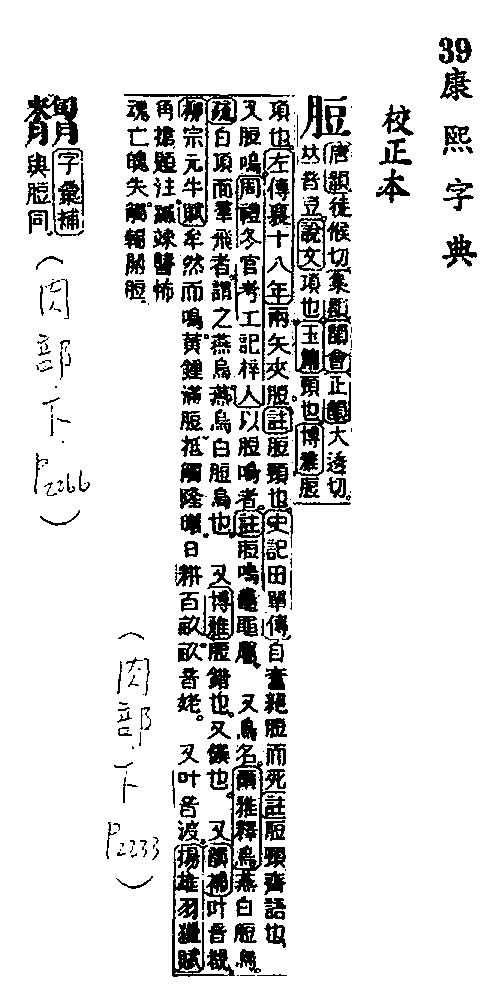 39
康熙字典
校正本
脰
唐韻徒候切集韻韻會正韻大透切
𠀤音豆說文項也玉篇頸也博雅脰
項也左傳襄十八年兩矢夾脰註脰頸也史記田單傳自奮絕脰而死註脰頸齊語也
又脰鳴周禮冬官考工記梓人以脰鳴者註脰鳴鼃黽屬 又鳥名爾雅釋鳥燕白脰烏
疏白項而羣飛者謂之燕烏燕烏白脰烏也 又博雅脰饌也又饋也 又韻補叶音
柳宗元牛賦牟然而鳴黃鍾滿脰抵觸隆曦日耕百畝畝音姥。 又叶音渡揚雄羽獵賦
角搶題注蹶竦讋怖
魂亡魄失觸輻關脰
字彙補
與脰同
(肉部.下.P2266)
(肉部.下 P2233)